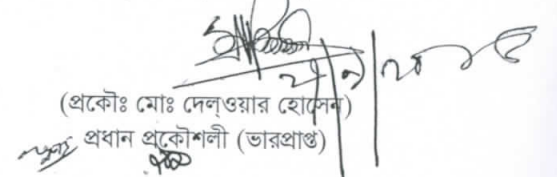 (প্রকৌঃ মোঃ দেল্ওয়ার হোসেন)
প্রধান প্রকৌশলী (ভারপ্রাপ্ত)